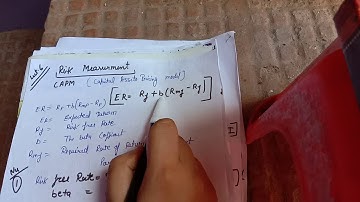 Risk Measurement
CAPM (Capital Assets Pricing model)
ER = Rf + b(Rmf - Rf) [ER = Rf + b(Rmf - Rf)]
ER = Expected Return
Rf = Risk free Rate
B = The beta Cofficient
Rmf = Required Rate of Return
①
Risk free Rate =
beta =